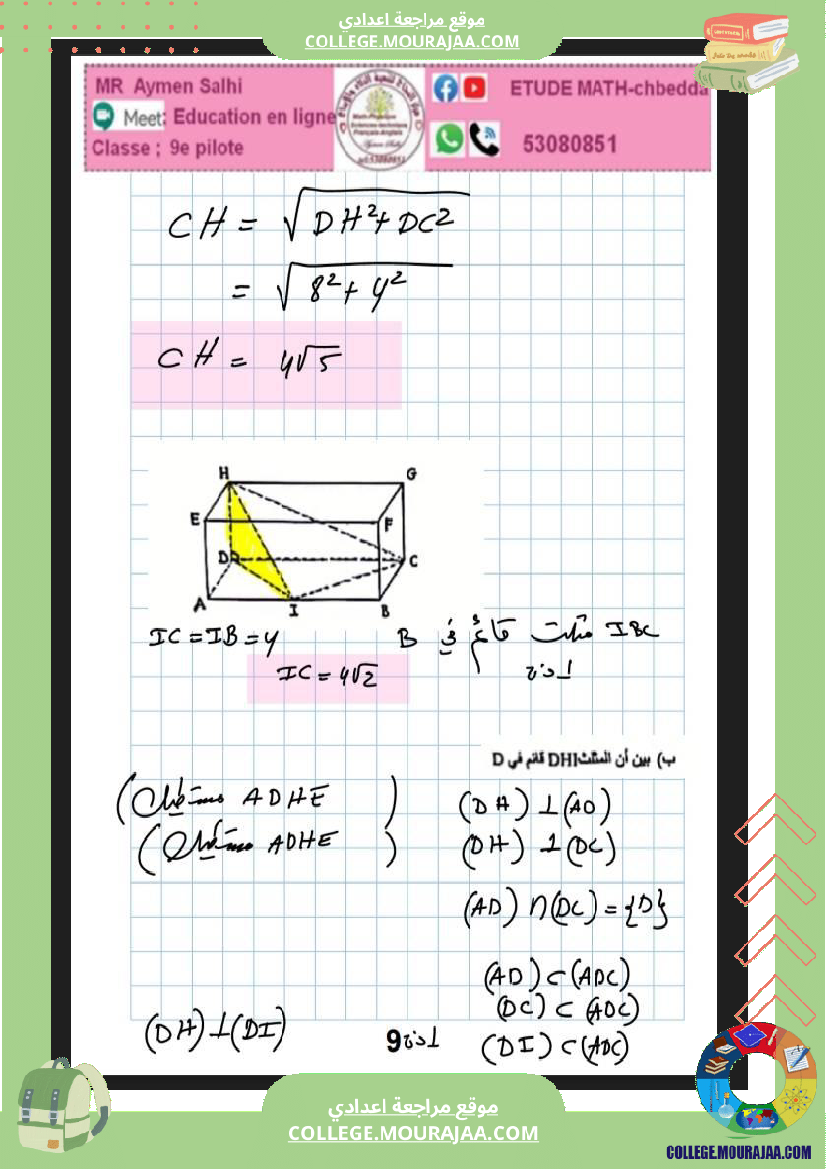 موقع مراجعة اعدادي
COLLEGE.MOURAJAA.COM
MR Aymen Salhi
Meet: Education en ligne
Classe ; 9e pilote
ETUDE MATH-chbedda
53080851
CH = √DH²+DC²
= √8²+4²
CH = 4√5
H G
E F
D C
A I B
IBC مثلث قائم في B
IC = IB = 4
اذن
IC = 4√2
ب) بين أن المثلث DHI قائم في D
(DH) ⊥ (AD) (ADHE مستطيل)
(DH) ⊥ (DC) (ADHE مستطيل)
(AD) ∩ (DC) = {D}
(AD) ⊂ (ADC)
(DC) ⊂ (ADC)
(DI) ⊂ (ADC)
اذن (DH) ⊥ (DI)
9
موقع مراجعة اعدادي
COLLEGE.MOURAJAA.COM
COLLEGE.MOURAJAA.COM